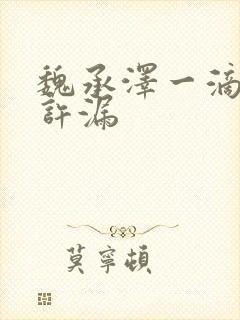 魏承澤一滴
許漏
莫寧頓